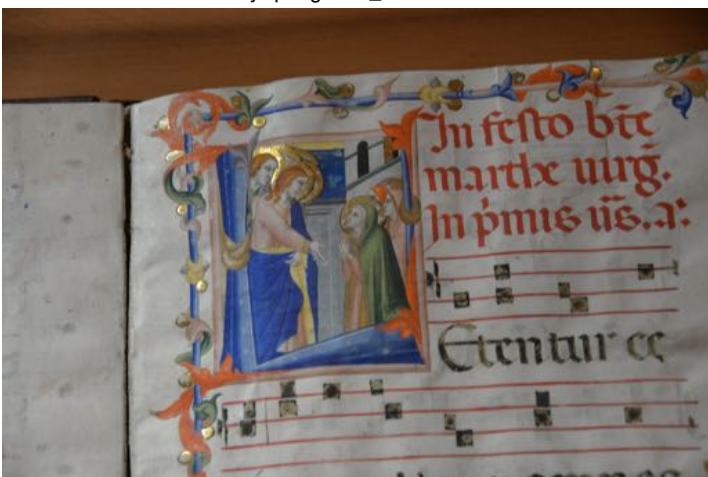 In festo bt̄e
marthe uirg̅.
In p̍mis us̄. a:
Etentur ec